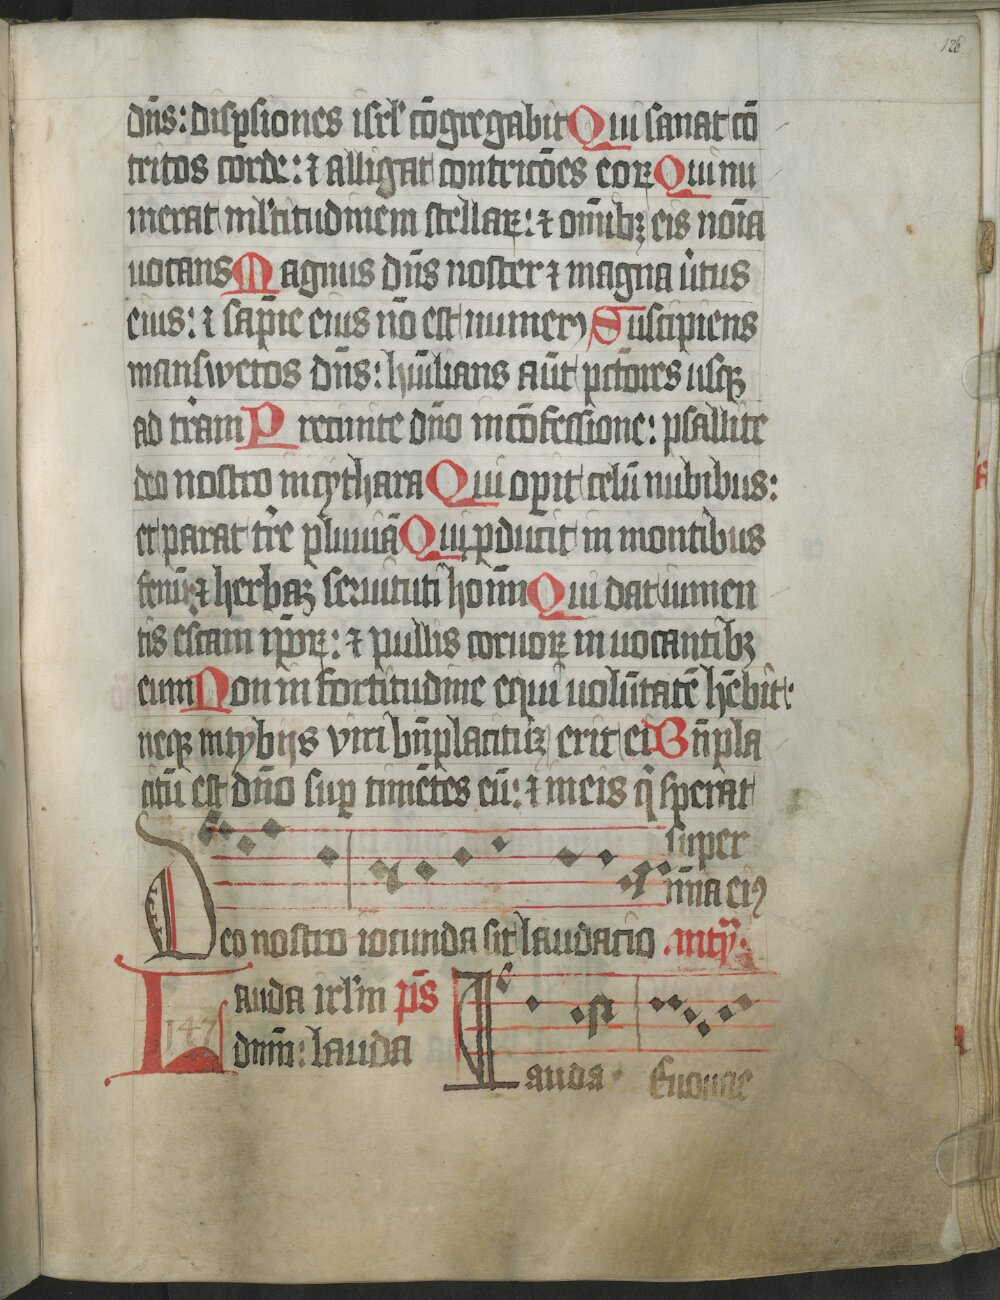 128
dn̄s: disp̱siones isrl' cōgregabit Qui sanat cō
tritos corde: ⁊ alligat contricōes eoꝝ Qui nu
merat ml'titudinem stellaꝝ: ⁊ om̄ibꝫ eis noīa
uocans Magnus dn̄s noster ⁊ magna u̇tus
eius: ⁊ sapīe eius nō est numerꝰ Suscipiens
manswetos dn̄s: hūilians aūt pc̄tores usqꝫ
ad tr̄am Precinite dn̄o in cōfessione: psallite
deo nostro in cythara Qui oꝑit celū nubibus:
et parat tr̄e pluuiā Qui ꝓducit in montibus
fenū ⁊ herbaꝫ seruituti hoīm Qui dat iumen
tis escam ip̄oꝝ: ⁊ pullis coruoꝝ inuocantibꝫ
eum Non in fortitudine equi uolūtatē hēbit:
neqꝫ in tybijs viri bn̄placitū erit ei Bn̄pla
citū est dn̄o suꝑ timētes eū: ⁊ in eis q̇ sperāt
super
mīa eiꝰ
Deo nostro iocunda sit laudacio .mtȳ.
Lauda irl'm ps̄
147
dnm̄: lauda
Lauda Euouae